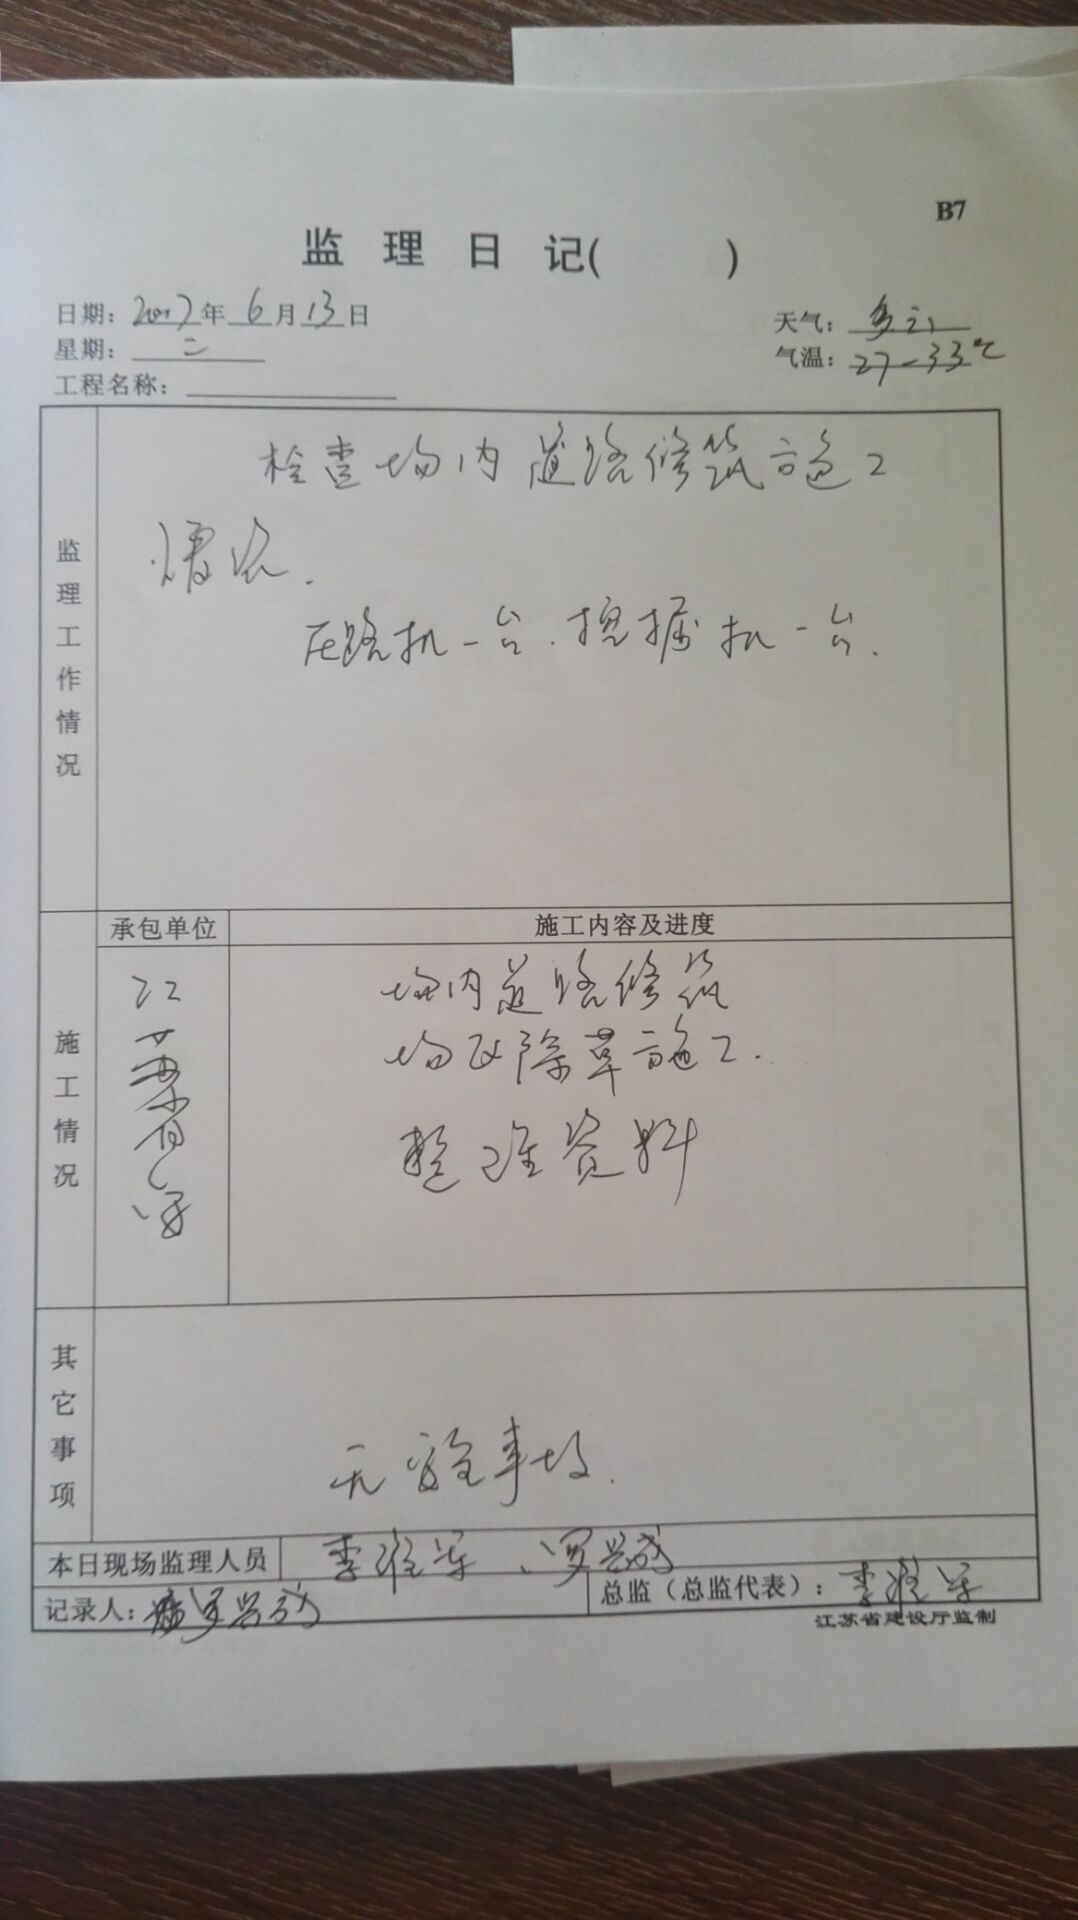 B7
监 理 日 记( )
日期：2017年 6 月 13 日
天气：多云
星期：二
气温：27-33℃
工程名称：
监理工作情况
检查场内道路修筑施工
情况.
压路机一台.挖掘机一台.
承包单位
施工内容及进度
施工情况
场内道路修筑
场区除草施工.
整理资料
其它事项
无安全事故.
本日现场监理人员 李雅军、罗兴成
记录人：罗兴成
总监（总监代表）：李雅军
江苏省建设厅监制